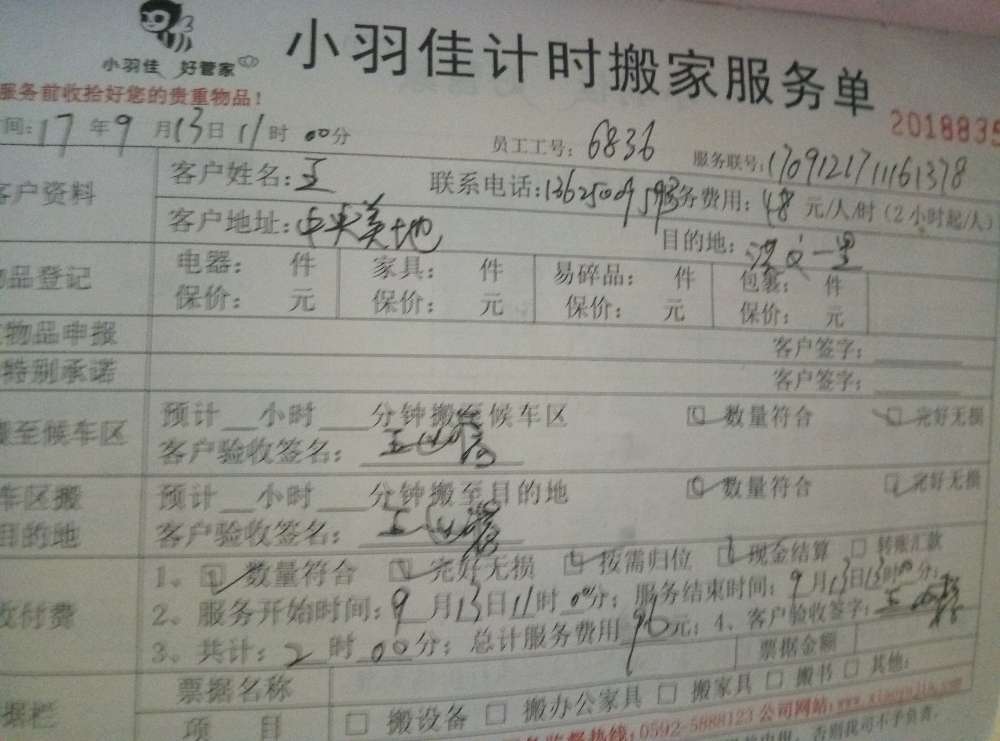 小羽佳 好管家
小羽佳计时搬家服务单
服务前收拾好您的贵重物品！
2018835
间：17年9月13日11时00分 员工工号：6836 服务联号：1709121711161378
客户资料
客户姓名：王 联系电话：13625009593 务费用：48元/人/时（2小时起/人）
客户地址：中央美地 目的地：一里
品登记
电器： 件 家具： 件 易碎品： 件 包裹： 件
保价： 元 保价： 元 保价： 元 保价： 元
物品申报 客户签字：
特别承诺 客户签字：
搬至候车区
预计 小时 分钟搬至候车区 数量符合 完好无损
客户验收签名：王
车区搬
目的地
预计 小时 分钟搬至目的地 数量符合 完好无损
客户验收签名：王
收付费
1、数量符合 完好无损 按需归位 现金结算 转账汇款
2、服务开始时间：9月13日11时00分；服务结束时间：9月13日13时00分；
3、共计：2时00分；总计服务费用96元；4、客户验收签字：王
据栏
票据名称 票据金额
项 目 搬设备 搬办公家具 搬家具 搬书 其他：
监督热线：0592-5888123 公司网站：www.xiaoyujia.com
否则我司不予负责.